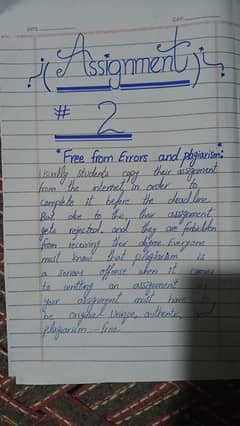 DATE:
DAY:
Assignment
# 2
"Free from Errors and plagiarism:"
Usually students copy their assignment
from the internet in order to
complete it before the deadline.
But due to this, their assignment
gets rejected, and they are forbidden
from receiving their degree. Everyone
must know that plagiarism is
a serious offense when it comes
to writting an assignment
your assignment must have to
be original Unique, authentic, and
plagiarism-free.